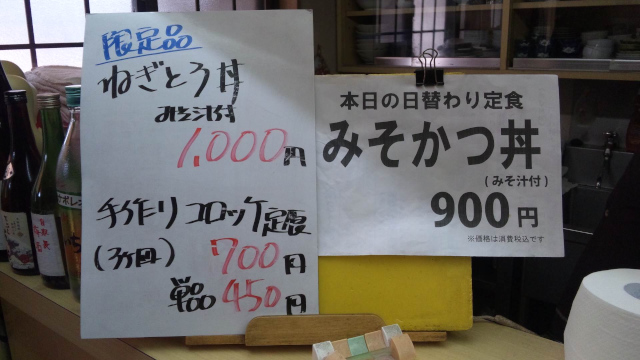 限定品
ねぎとろ丼
みそ汁付
1,000円
手作りコロッケ定食
(3ヶ回)
700円
単品 450円
本日の日替わり定食
みそかつ丼
(みそ汁付)
900円
※価格は消費税込です